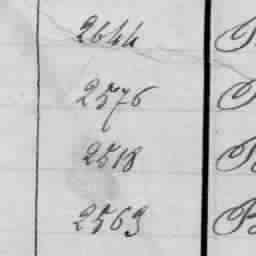 2644
2576
2518
2563